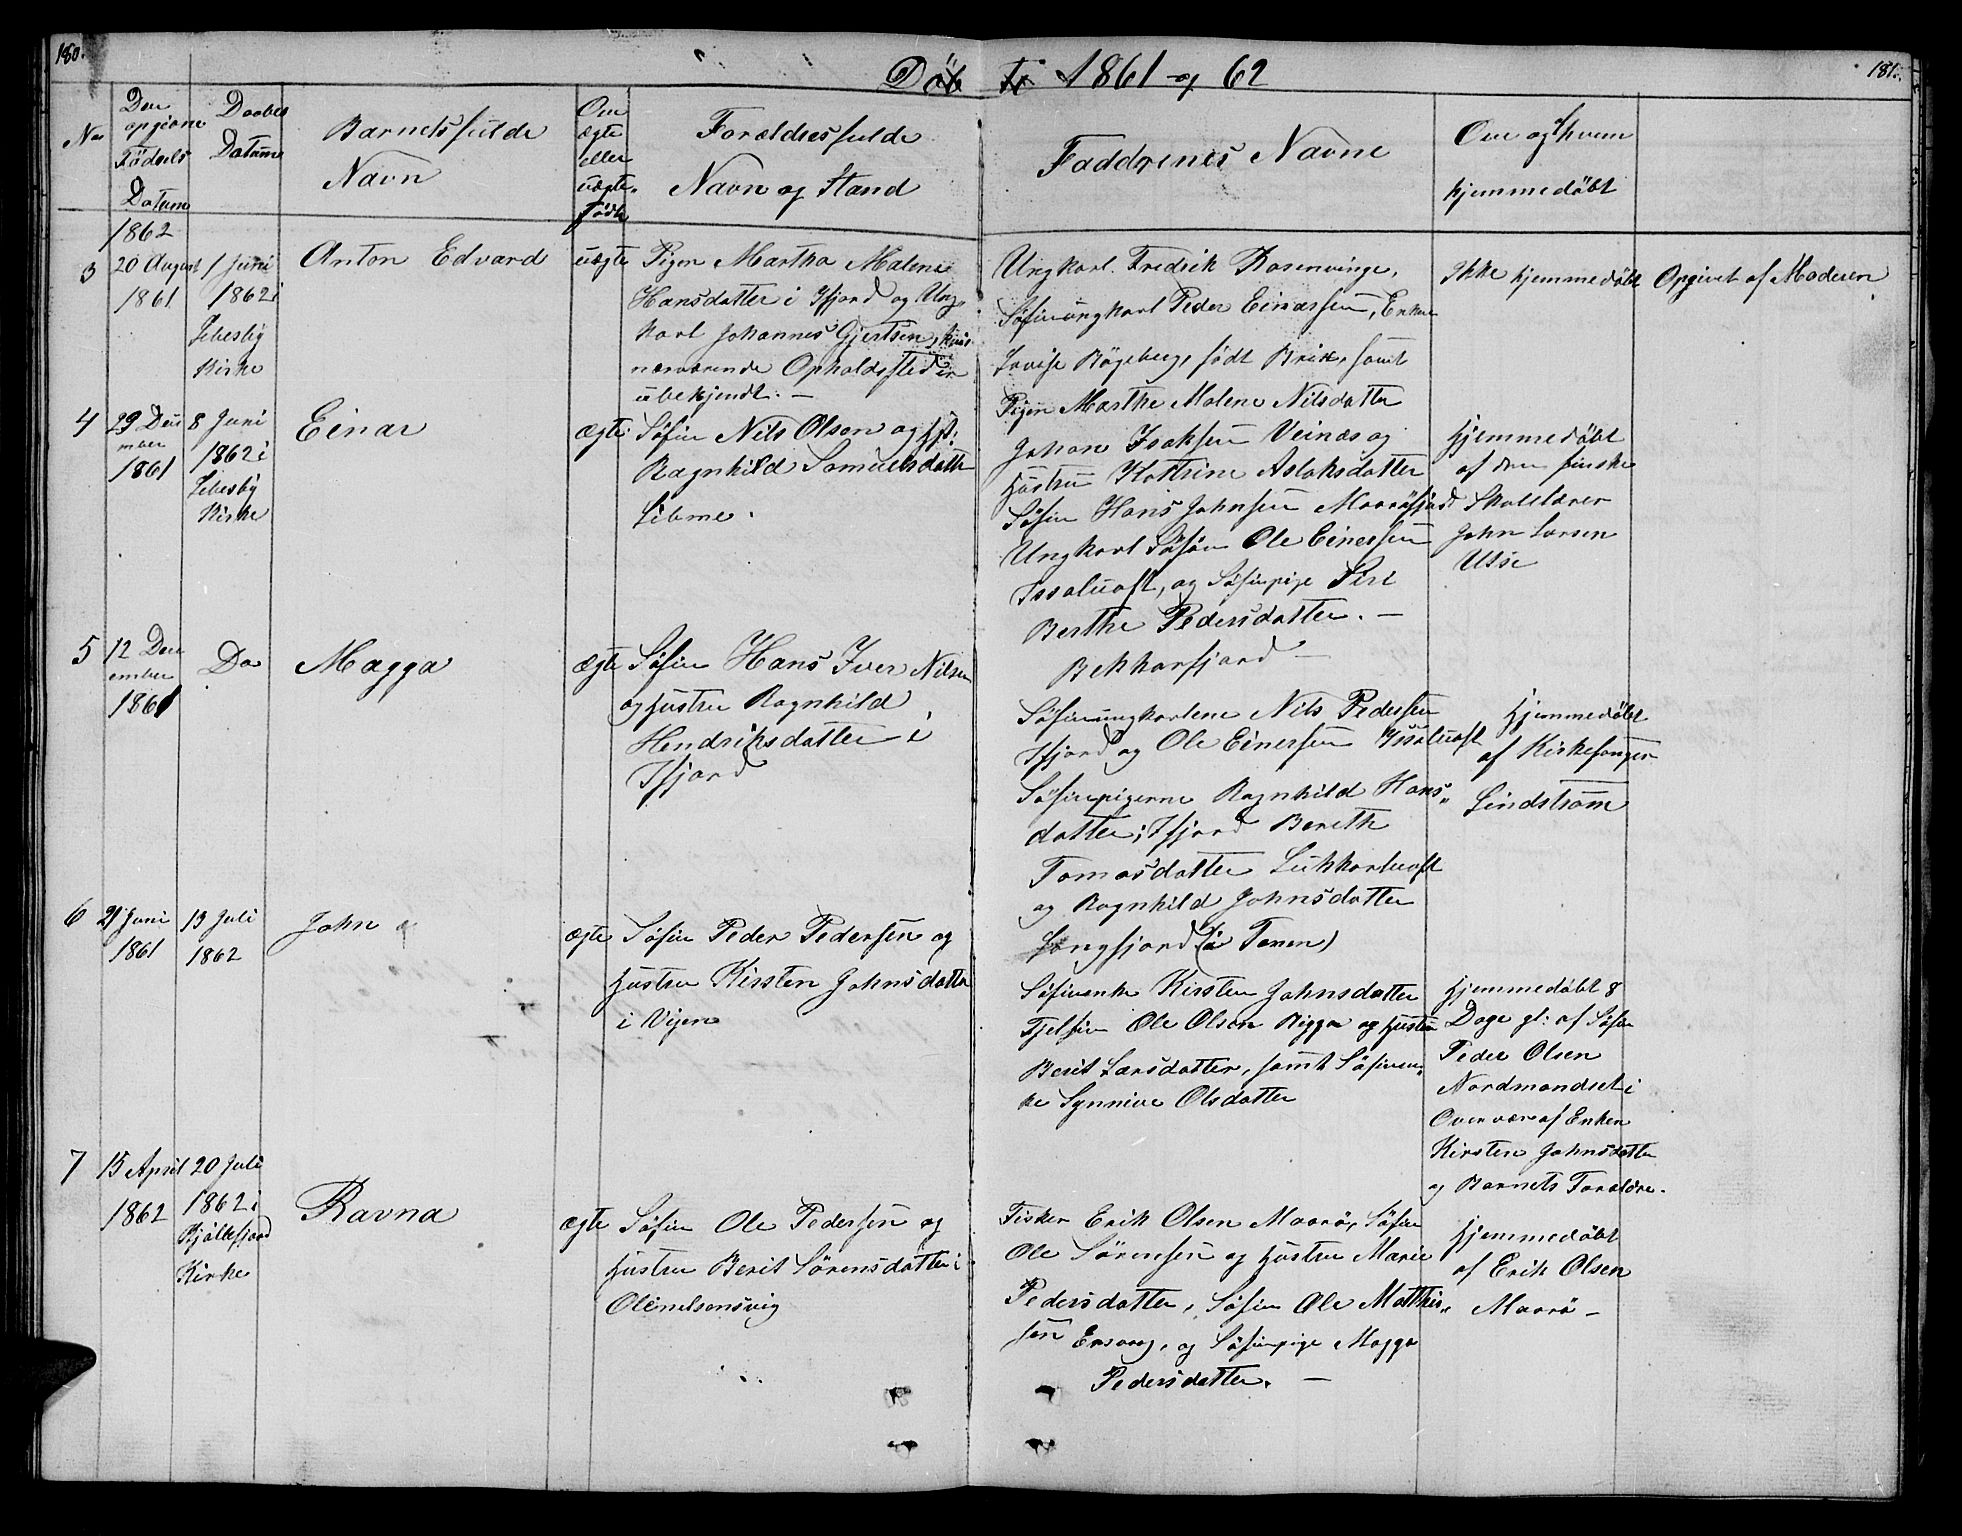 180.
Döb 1861 og 62
181.
No
Den opgivne Fødsels Datum
Daabs Datum
Barnets fulde Navn
Om ægte eller uægte født
Forældres fulde Navn og Stand
Faddrenes Navne
Om og af hvem hjemmedöbt
1862
3
20 August 1861
1 Juni 1862 i Lebesby Kirke
Anton Edvard
uægte
Pigen Martha Malene
Hansdatter i Ifjord og Ung
karl Johannes Gjertsen, hvis
nærværende Opholdssted er
ubekjendt. —
Ungkarl. Fredrik Rosenvinge,
Søfinungkarl Peder Einarsen, Enken
Lovise Bøgeberg, født Brix, samt
Pigen Marthe Malene Nilsdatter
Ikke hjemmedöbt
Opgivet af Moderen
4
29 December 1861
8 Juni 1862 i Lebesby Kirke
Einar
ægte
Søfin Nils Olsen og Hst:
Ragnhild Samuelsdatter
Libme.
Johan Isaksen Veinæs og
Hustru Kattrine Aslaksdatter
Søfin Hans Johnsen Maaröfjord
Ungkarl Søfin Ole Einersen
Issoluoft, og Søfinpige Siri
Berthe Pedersdatter. —
Bekkarfjord —
Hjemmedöbt
af den finske
Skolelærer
John Larsen
Utsi
5
12 December 1861
Do
Magga
ægte
Søfin Hans Iver Nilsen
og Hustru Ragnhild
Hendriksdatter i
Ifjord
Søfinungkarlene Nils Pedersen
Ifjord og Ole Einersen Issoluoft
Søfinpigerne Ragnhild Hans"
datter i Ifjord Bereth
Tomasdatter Lukkarluoft
og Ragnhild Johnsdatter
Langfjord (i Tanen)
Hjemmedöbt
af Kirkesanger
Lindström
6
21 Juni 1861
13 Juli 1862
John
ægte
Søfin Peder Pedersen og
Hustru Kirsten Johnsdatter
i Vijen
Søfinenke Kirsten Johnsdatter
Fjelfin Ole Olsen Bigga og Hustru
Berit Larsdatter, samt Søfinen"
ke Synnive Olsdatter
Hjemmedöbt 8
Dage gl: af Søfin
Peder Olsen
Nordmandset i
Overvære af Enken
Kirsten Johnsdatter
og Barnets Forældre.
7
15 April 1862
20 Juli 1862 i Kjöllefjord Kirke
Ravna
ægte
Søfin Ole Pedersen og
Hustru Berit Sörensdatter i
Olenilsensvig
Fisker Erik Olsen Maarö, Søfin
Ole Sörensen og Hustru Marie
Pedersdatter, Søfin Ole Matthis"
sen og Søfinpige Magga
Pedersdatter. —
Hjemmedöbt
af Erik Olsen
Maarö —